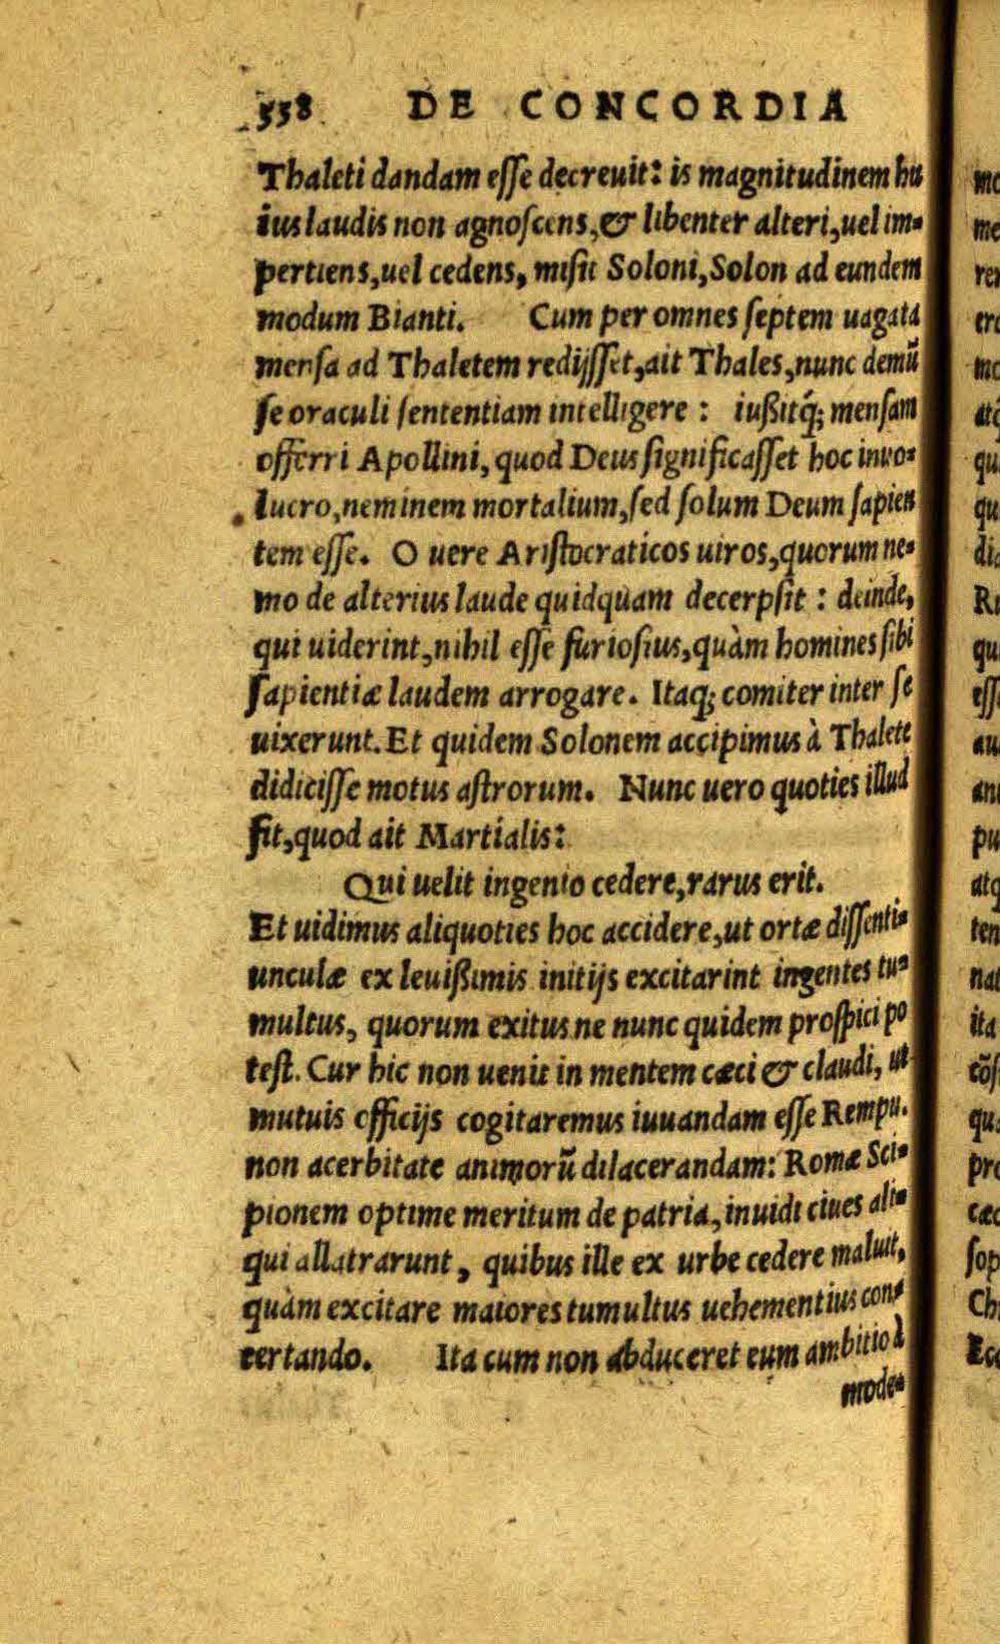 558 DE CONCORDIA
Thaleti dandam eſſe decreuit: is magnitudinem hu
ius laudis non agnoſcens, & libenter alteri, uel im-
pertiens, uel cedens, miſit Soloni, Solon ad eundem
modum Bianti. Cum per omnes ſeptem uagata
menſa ad Thaletem redijſſet, ait Thales, nunc demũ
ſe oraculi ſententiam intelligere : iußitq́; menſam
offerri Apollini, quod Deus ſignificaſſet hoc inuo-
lucro, neminem mortalium, ſed ſolum Deum ſapien
tem eſſe. O uere Ariſtocraticos uiros, quorum ne-
mo de alterius laude quidquam decerpſit : deinde,
qui uiderint, nihil eſſe furioſius, quàm homines ſibi
ſapientiæ laudem arrogare. Itaq; comiter inter ſe
uixerunt. Et quidem Solonem accipimus à Thalete
didiciſſe motus aſtrorum. Nunc uero quoties illud
fit, quod ait Martialis:
Qui uelit ingenio cedere, rarus erit.
Et uidimus aliquoties hoc accidere, ut ortæ diſſenti-
unculæ ex leuißimis initijs excitarint ingentes tu-
multus, quorum exitus ne nunc quidem proſpici po
teſt. Cur hic non uenit in mentem cæci & claudi, ut
mutuis officijs cogitaremus iuuandam eſſe Rempu.
non acerbitate animorũ dilacerandam: Romæ Sci-
pionem optime meritum de patria, inuidi ciues ali-
qui allatrarunt, quibus ille ex urbe cedere maluit,
quàm excitare maiores tumultus uehementius con-
certando. Ita cum non abduceret eum ambitio à
mode-
mo
me